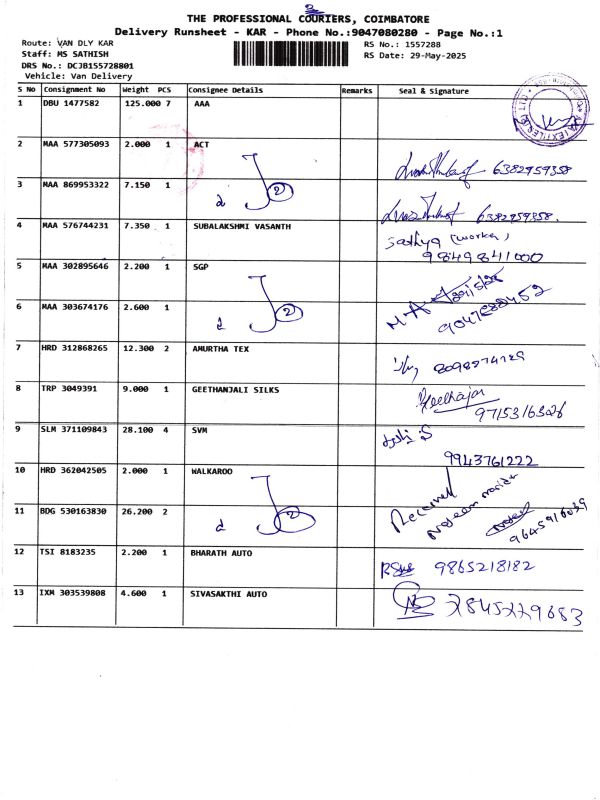 THE PROFESSIONAL COURIERS, COIMBATORE
Delivery Runsheet - KAR - Phone No.:9047080280 - Page No.:1
Route: VAN DLY KAR
Staff: MS SATHISH
DRS No.: DCJB155728801
Vehicle: Van Delivery
RS No.: 1557288
RS Date: 29-May-2025
S No Consignment No Weight PCS Consignee Details Remarks Seal & Signature
1 DBU 1477582 125.000 7 AAA
2 MAA 577305093 2.000 1 ACT
6382959358
3 MAA 869953322 7.150 1
6382959358.
4 MAA 576744231 7.350 1 SUBALAKSHMI VASANTH
Sathya (worker)
9849841000
5 MAA 302895646 2.200 1 SGP
6 MAA 303674176 2.600 1
7 HRD 312868265 12.300 2 AMURTHA TEX
8 TRP 3049391 9.000 1 GEETHANJALI SILKS
9715316326
9 SLM 371109843 28.100 4 SVM
9943761222
10 HRD 362042505 2.000 1 WALKAROO
Received
11 BDG 530163830 26.200 2
9645916039
12 TSI 8183235 2.200 1 BHARATH AUTO
9865218182
13 IXM 303539808 4.600 1 SIVASAKTHI AUTO